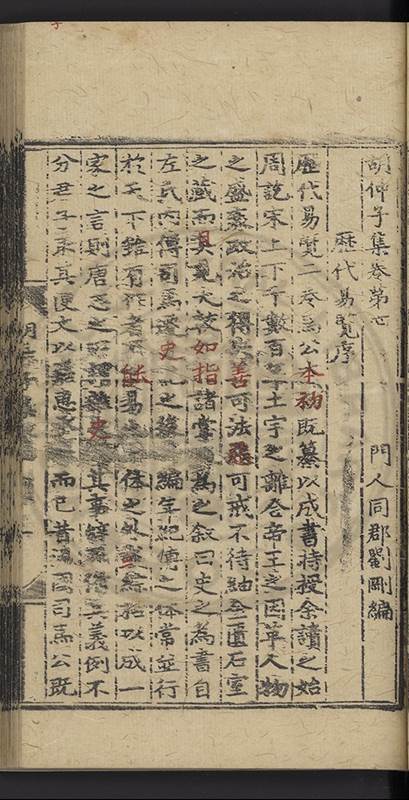 胡仲子集卷第七
門人同郡劉剛編
歷代易覽序
歷代易覽二卷烏公本初既纂以成書持授余讀之始
周訖宋上下千數百年土宇之離合帝王之因革人物
之盛衰政治之得失善可法惡可戒不待紬金匱石室
之藏而具見大致如指諸掌爲之叙曰史之為書自
左氏內傳司馬遷史記之後編年紀傳之体常並行
於天下雖有作者不能易也体之外綜括以成一
家之言則唐之史其事辭義例不
分君子系其便文以而已昔溫國司馬公既